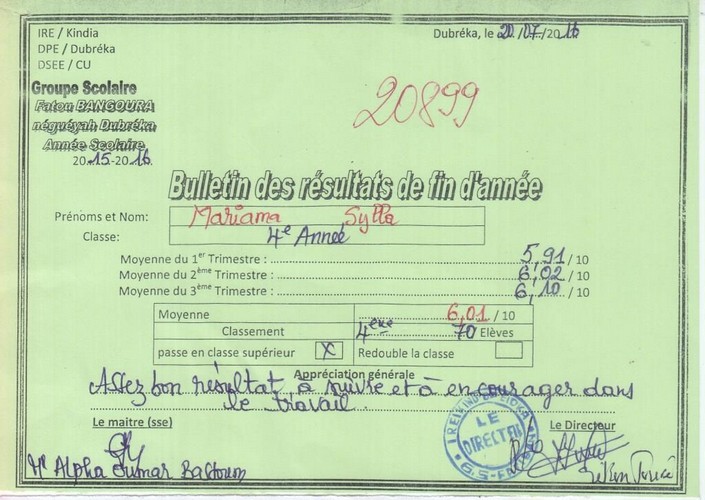 IRE / Kindia
DPE / Dubréka
DSEE / CU
Dubréka, le 20/07/2016
Groupe Scolaire
Fatou BANGOURA
néguéyah Dubréka
Année Scolaire
2015-2016
20899
Bulletin des résultats de fin d'année
Prénoms et Nom: Mariama Sylla
Classe: 4e Année
Moyenne du 1er Trimestre : 5,91 / 10
Moyenne du 2ème Trimestre : 6,02 / 10
Moyenne du 3ème Trimestre : 6,10 / 10
Moyenne 6,01 / 10
Classement 4ème 70 Elèves
passe en classe supérieur X Redouble la classe
Appréciation générale
Assez bon résultat, à suivre et à encourager dans
le travail.
Le maitre (sse) Le Directeur
LE
DIRECTEUR
Mr Alpha Oumar